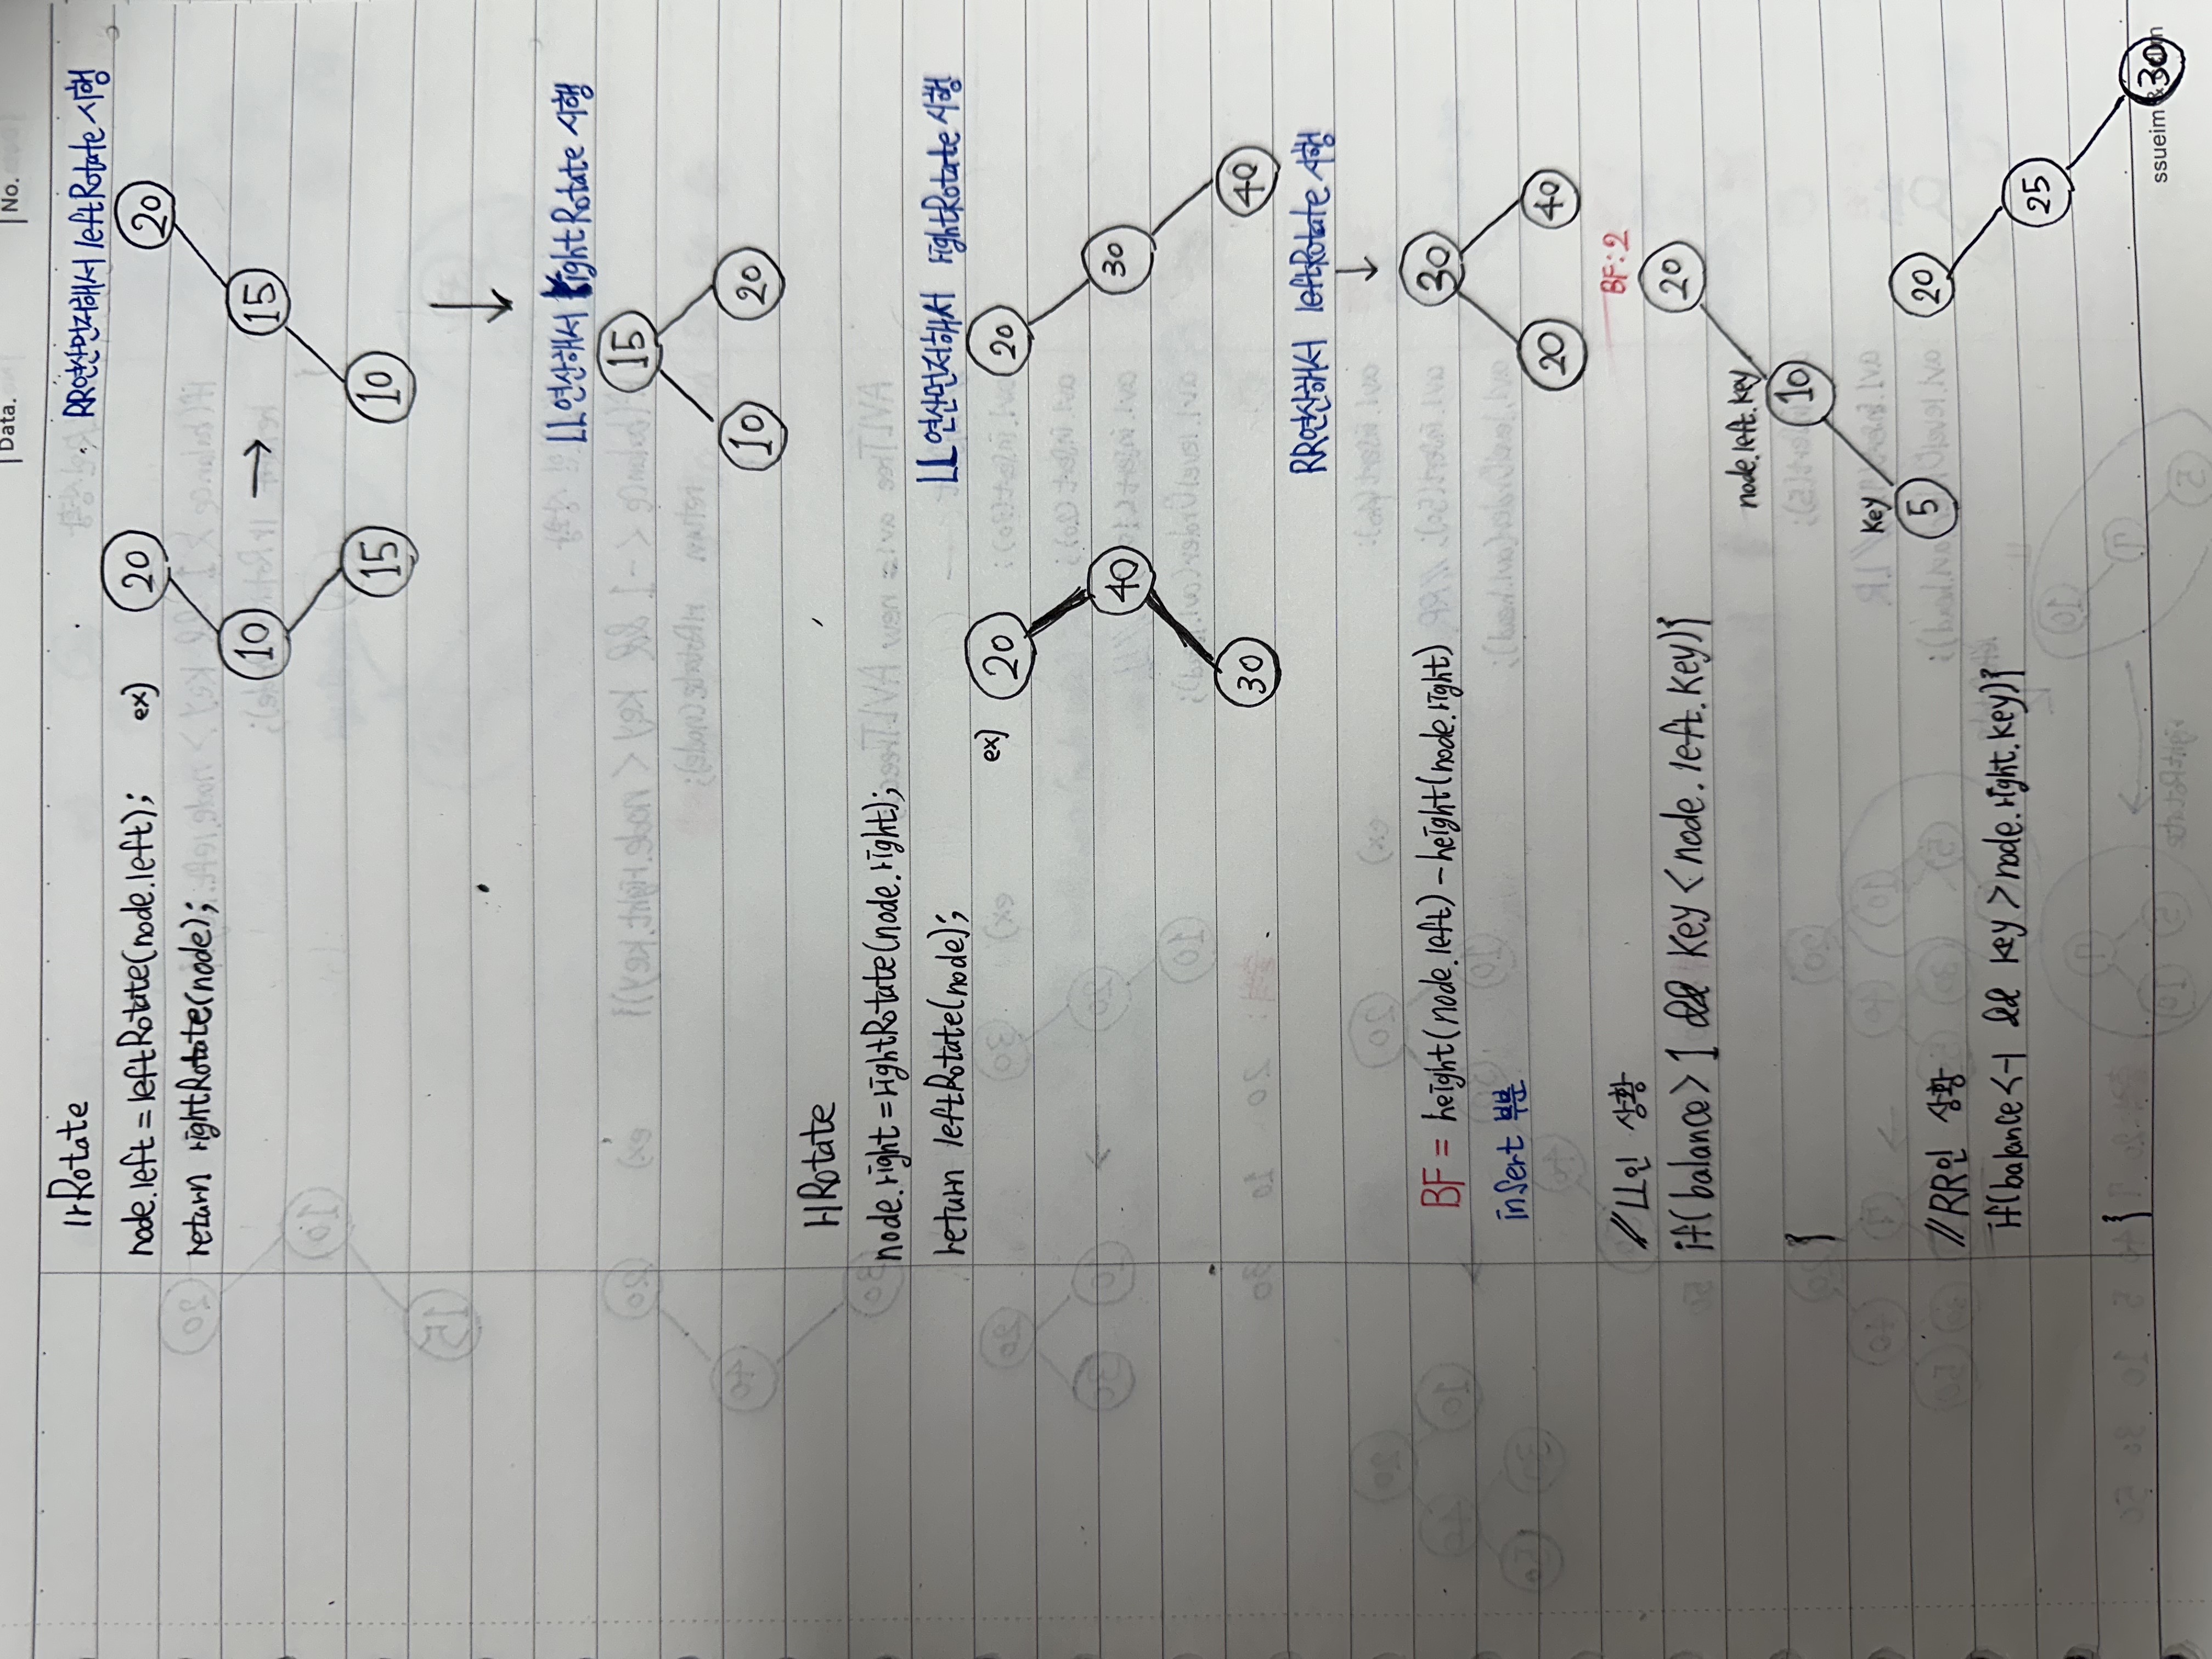 Data.
No.
lrRotate
RR연산먼저해서 leftRotate 시행
node.left = leftRotate(node.left);
ex)
20
20
return rightRotate(node);
10
→
15
15
10
LL연산해서 rightRotate 시행
15
10
20
rlRotate
node.right = rightRotate(node.right);
return leftRotate(node);
LL연산먼저해서 rightRotate 시행
ex)
20
20
40
30
30
40
RR연산해서 leftRotate 시행
BF = height(node.left) - height(node.right)
30
insert 부분
20
40
//LL인 상황
BF:2
if(balance > 1 && key < node.left.key){
20
node.left.key
10
}
key
5
20
//RR인 상황
if(balance <-1 && key > node.right.key){
25
}
30
ssueim &